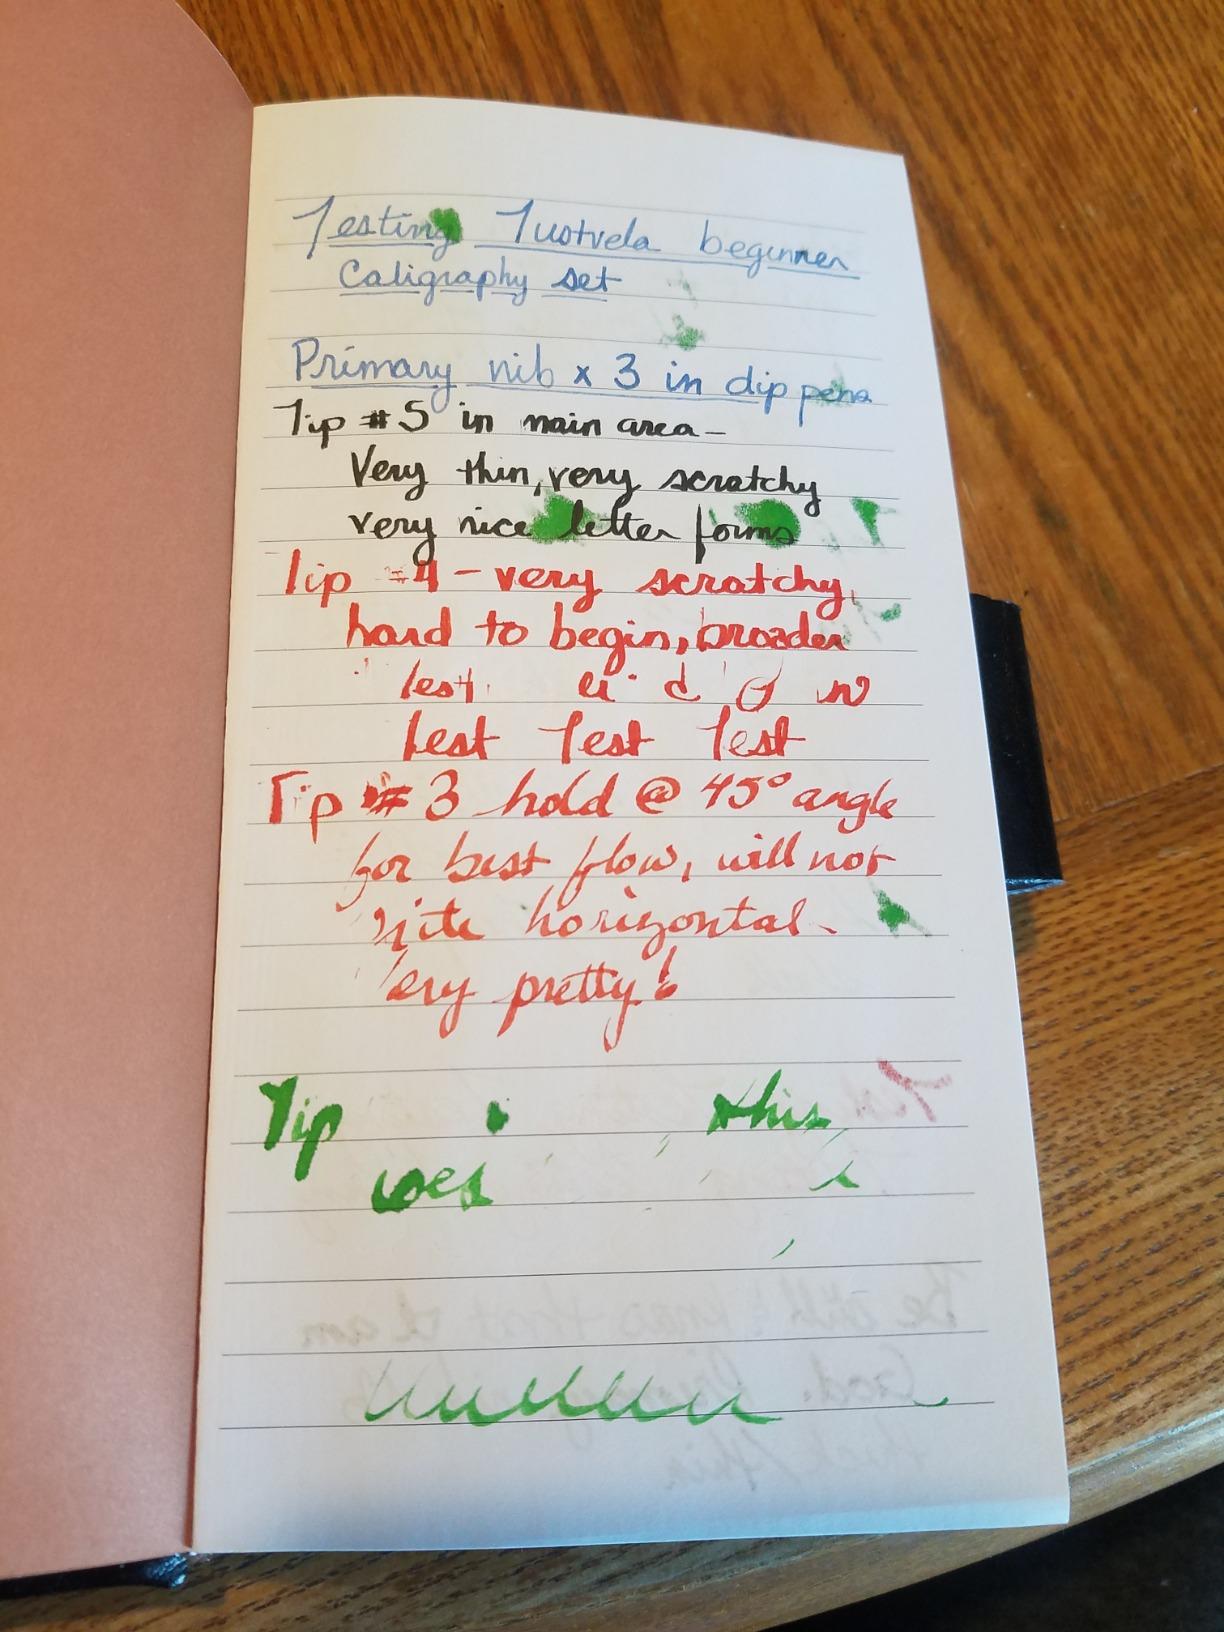 Testing Tustvela beginner
Caligraphy set
Primary nib x 3 in dip pens
Tip #5 in main area -
Very thin, very scratchy
very nice letter forms
Tip #4 - very scratchy,
hard to begin, broader
test
test Test Test
Tip #3 hold @ 45° angle
for best flow, will not
rite horizontal.
Very pretty!
Tip this